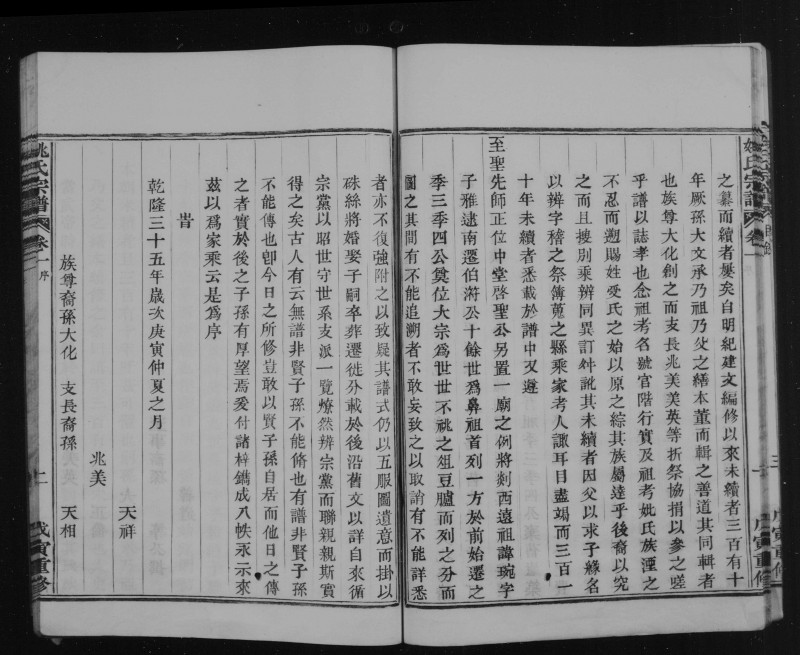 之纂而續者屢矣自明紀建文編修以來未續者三百有十
年厥孫大文承乃祖乃父之繕本董而輯之善道其同輯者
也族尊大化創之而支長兆美美英等折祭協捐以參之嗟
乎譜以誌孝也念祖考名號官階行實及祖考妣氏族湮之
不忍而遡賜姓受氏之始以原之綜其族屬達乎後裔以究
之而且搜别乘辨同異訂舛訛其未續者因父以求子緣名
以辨字稽之祭簿蒐之縣乘家考人諏耳目盡竭而三百一
十年未續者悉載於譜中又遵
至聖先師正位中堂啓聖公另置一廟之例將剡西遠祖諱琬字
子雅逮南遷伯游公十餘世爲鼻祖首列一方於前始遷之
季三季四公奠位大宗爲世世不祧之俎豆臚而列之分而
圖之其間有不能追溯者不敢妄致之以取誚有不能詳悉
者亦不復強附之以致疑其譜式仍以五服圖遺意而掛以
硃絲將婚娶子嗣卒葬遷徙分載於後沿舊文以詳自來循
宗黨以昭世守世系支派一覽燎然辨宗黨而聯親親斯實
得之矣古人有云無譜非賢子孫不能脩也有譜非賢子孫
不能傳也卽今日之所修豈敢以賢子孫自居而他日之傳
之者實於後之子孫有厚望焉爰付諸梓鐫成八帙永示來
茲以爲家乘云是爲序
旹
乾隆三十五年歲次庚寅仲夏之月
天祥
兆美
族尊裔孫大化 支長裔孫 天相
姚氏宗譜 卷一 序
十一 戊寅重修